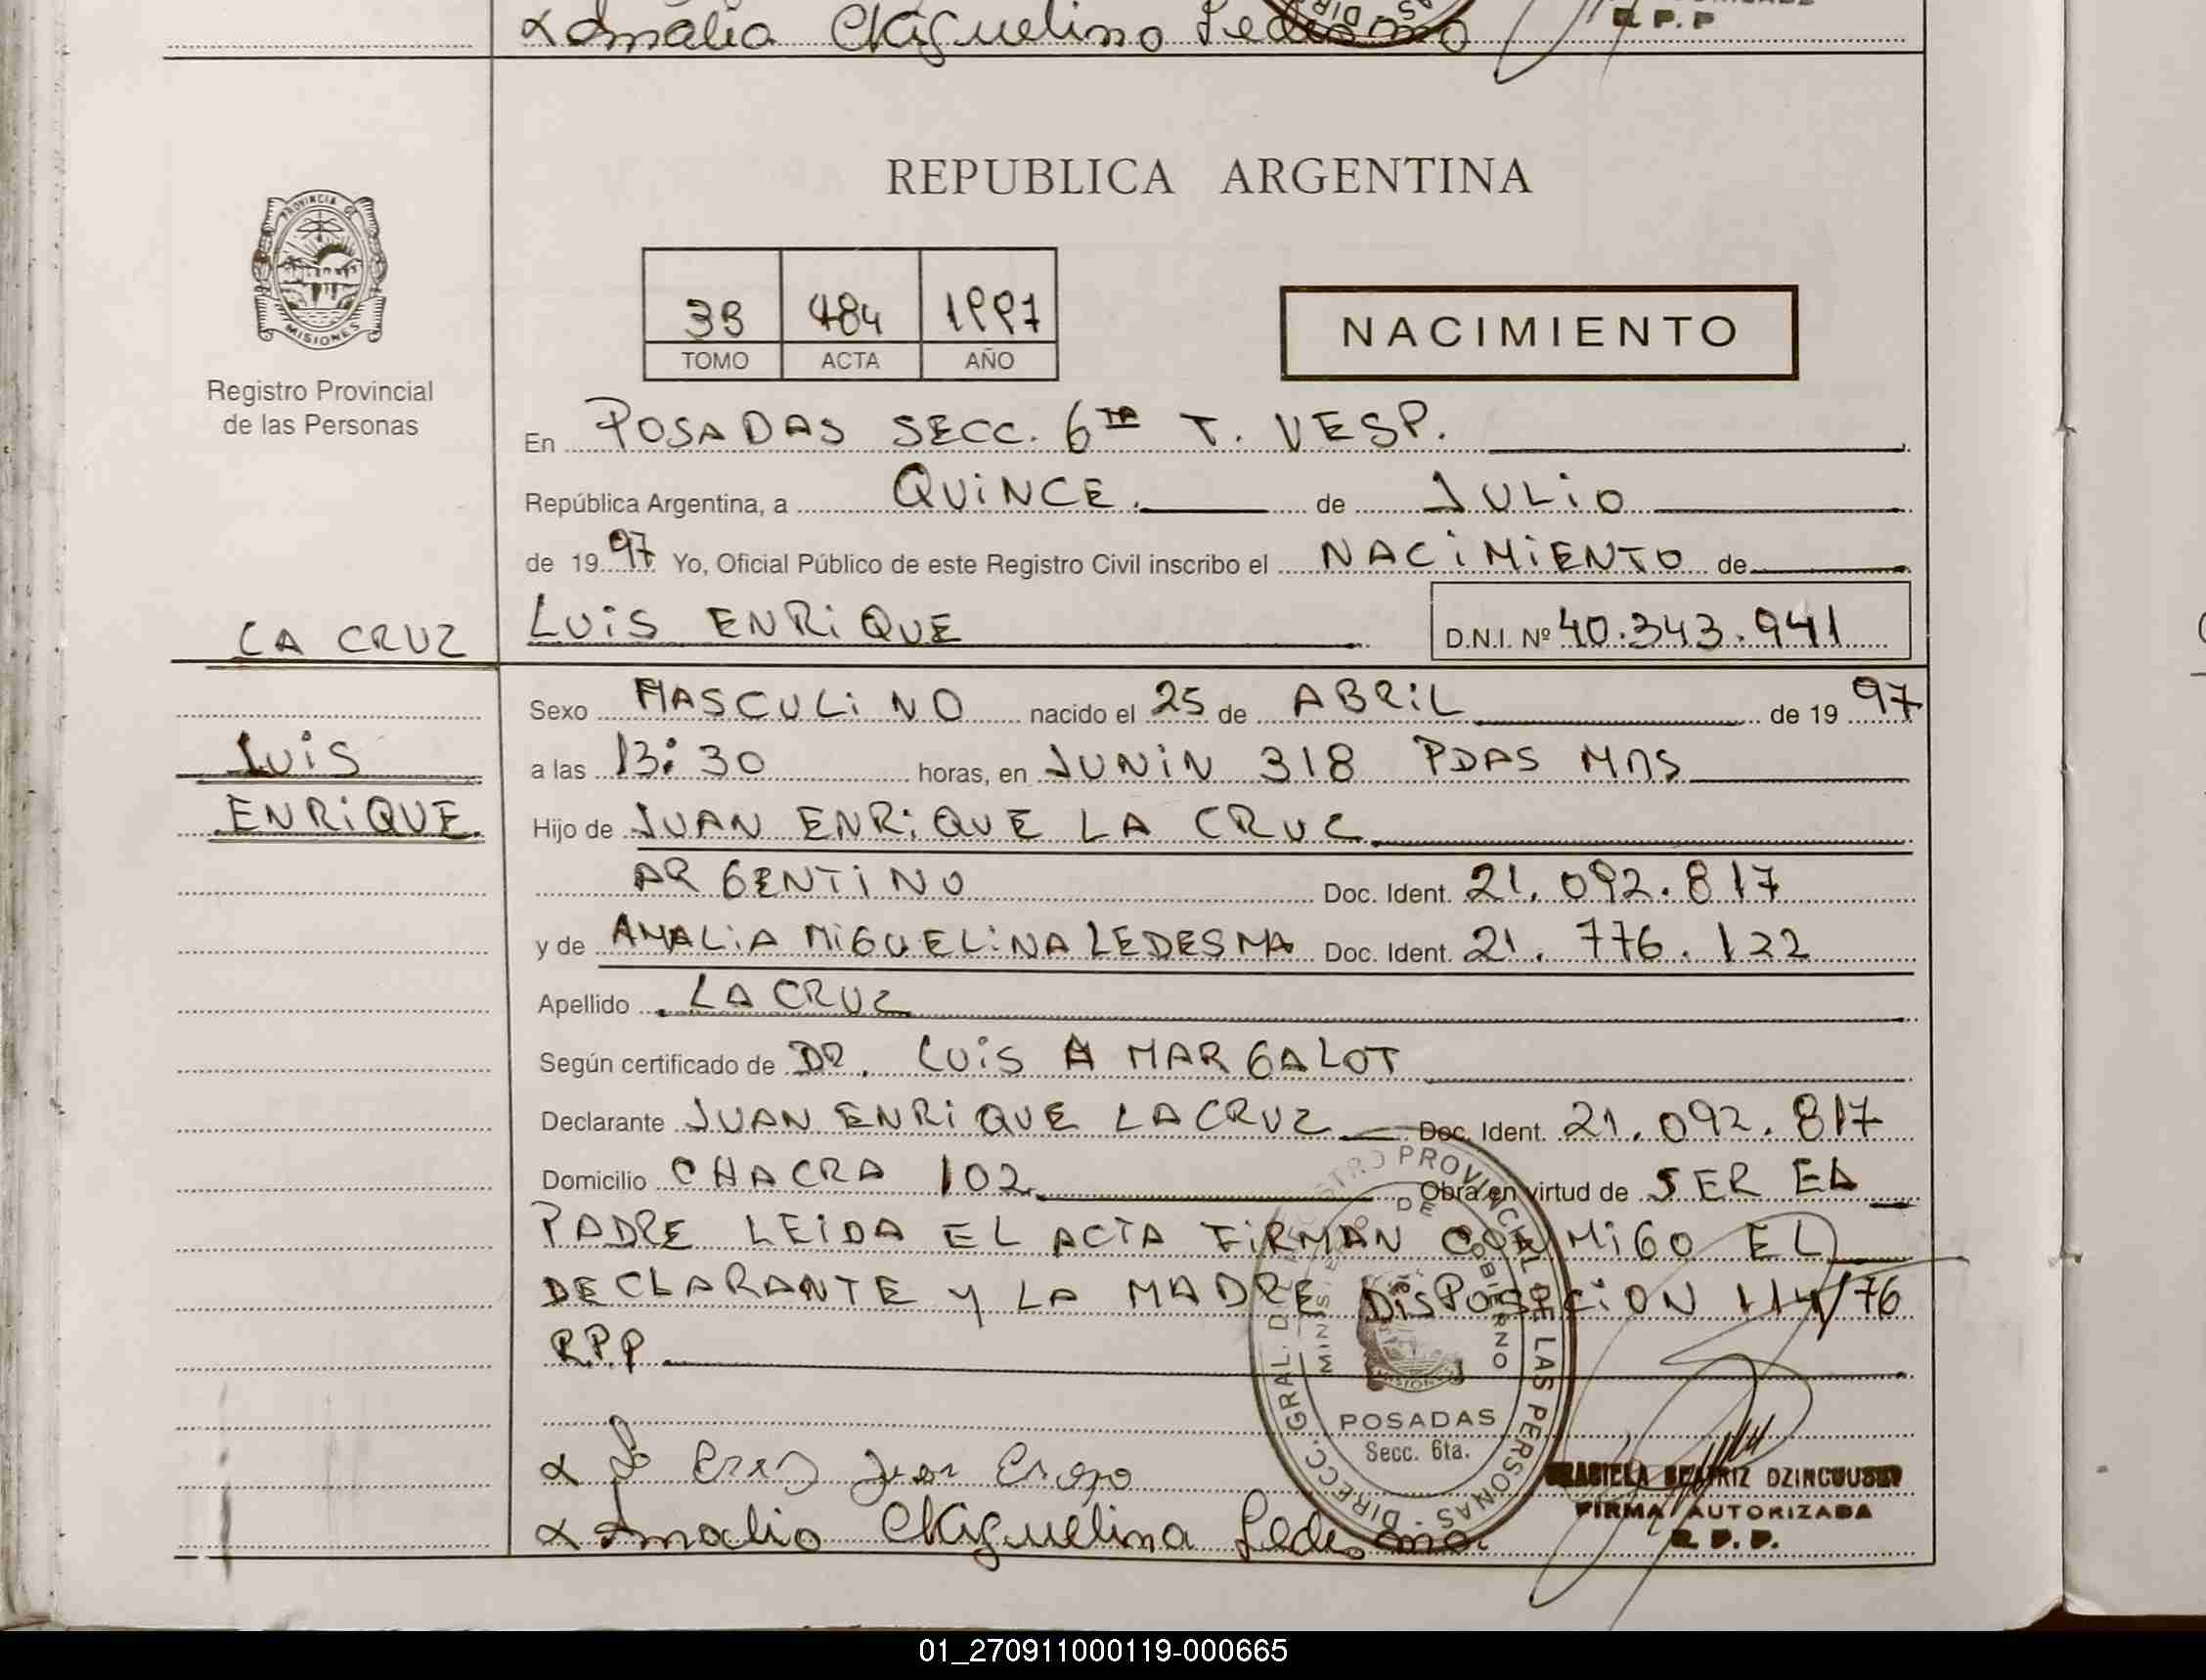 Amalia Miguelina Ledesma
R.P.P
PROVINCIA DE
MISIONES
Registro Provincial
de las Personas
REPUBLICA ARGENTINA
3B 484 1997
TOMO ACTA AÑO
NACIMIENTO
En POSADAS SECC. 6TA T. VESP.
República Argentina, a QUINCE de JULIO
de 1997 Yo, Oficial Público de este Registro Civil inscribo el NACIMIENTO de
LA CRUZ
LUIS ENRIQUE D.N.I. Nº 40.343.941
Sexo MASCULINO nacido el 25 de ABRIL de 1997
LUIS
a las 13:30 horas, en JUNIN 318 PDAS MNS
ENRIQUE.
Hijo de JUAN ENRIQUE LA CRUZ
ARGENTINO Doc. Ident. 21.092.817
y de AMALIA MIGUELINA LEDESMA Doc. Ident. 21.776.122
Apellido LA CRUZ
Según certificado de DR. LUIS A MARGALOT
Declarante JUAN ENRIQUE LA CRUZ Doc. Ident. 21.092.817
Domicilio CHACRA 102 Obra en virtud de SER EL
PADRE LEIDA EL ACTA FIRMAN CONMIGO EL
DECLARANTE Y LA MADRE DISPOSICION 114/76
RPP
DIRECC. GRAL. DEL REGISTRO PROVINCIAL DE LAS PERSONAS
MINISTERIO DE GOBIERNO
MISIONES
POSADAS
Secc. 6ta.
La Cruz Juan Enrique
Amalia Miguelina Ledesma
GRACIELA BEATRIZ
FIRMA AUTORIZADA
R.P.P.
01_270911000119-000665